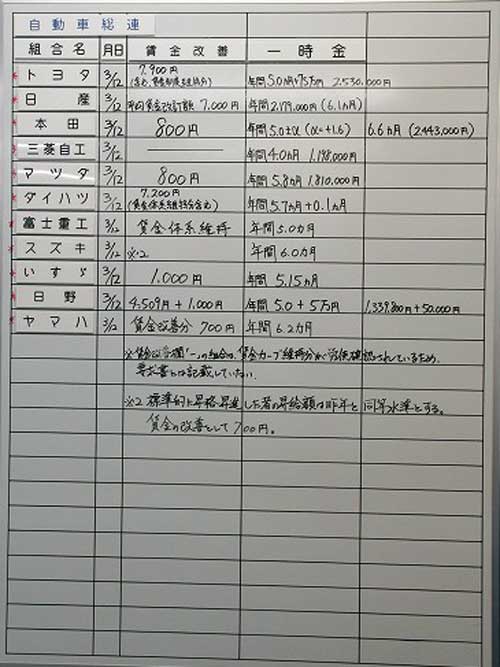 自動車総連
組合名 月日 賃金改善 一時金
トヨタ 3/12 7,900円 年間5.0ヵ月+75万円 2,530,000円
(含む、賃金制度維持分)
日産 3/12 平均賃金改訂額 7,000円 年間2,179,000円(6.1ヵ月)
本田 3/12 800円 年間5.0+α (α=+1.6) 6.6ヵ月 (2,443,000円)
三菱自工 3/12 ― 年間4.0ヵ月 1,198,000円
マツダ 3/12 800円 年間5.8ヵ月 1,810,000円
ダイハツ 3/12 7,200円 年間5.7ヵ月+0.1ヵ月
(賃金体系維持分含む)
富士重工 3/12 賃金体系維持 年間5.0ヵ月
スズキ 3/12 ※2 年間6.0ヵ月
いすゞ 3/12 1,000円 年間5.15ヵ月
日野 3/12 4,509円+1,000円 年間5.0+5万円 1,339,800円+50,000円
ヤマハ 3/12 賃金改善分 700円 年間6.2ヵ月
※賃金改善欄「-」の組合は、賃金カーブ維持分が労使確認されているため、
要求書には記載していない。
※2 標準的に昇格昇進した者の昇給額は昨年と同等水準とする。
賃金の改善として700円。